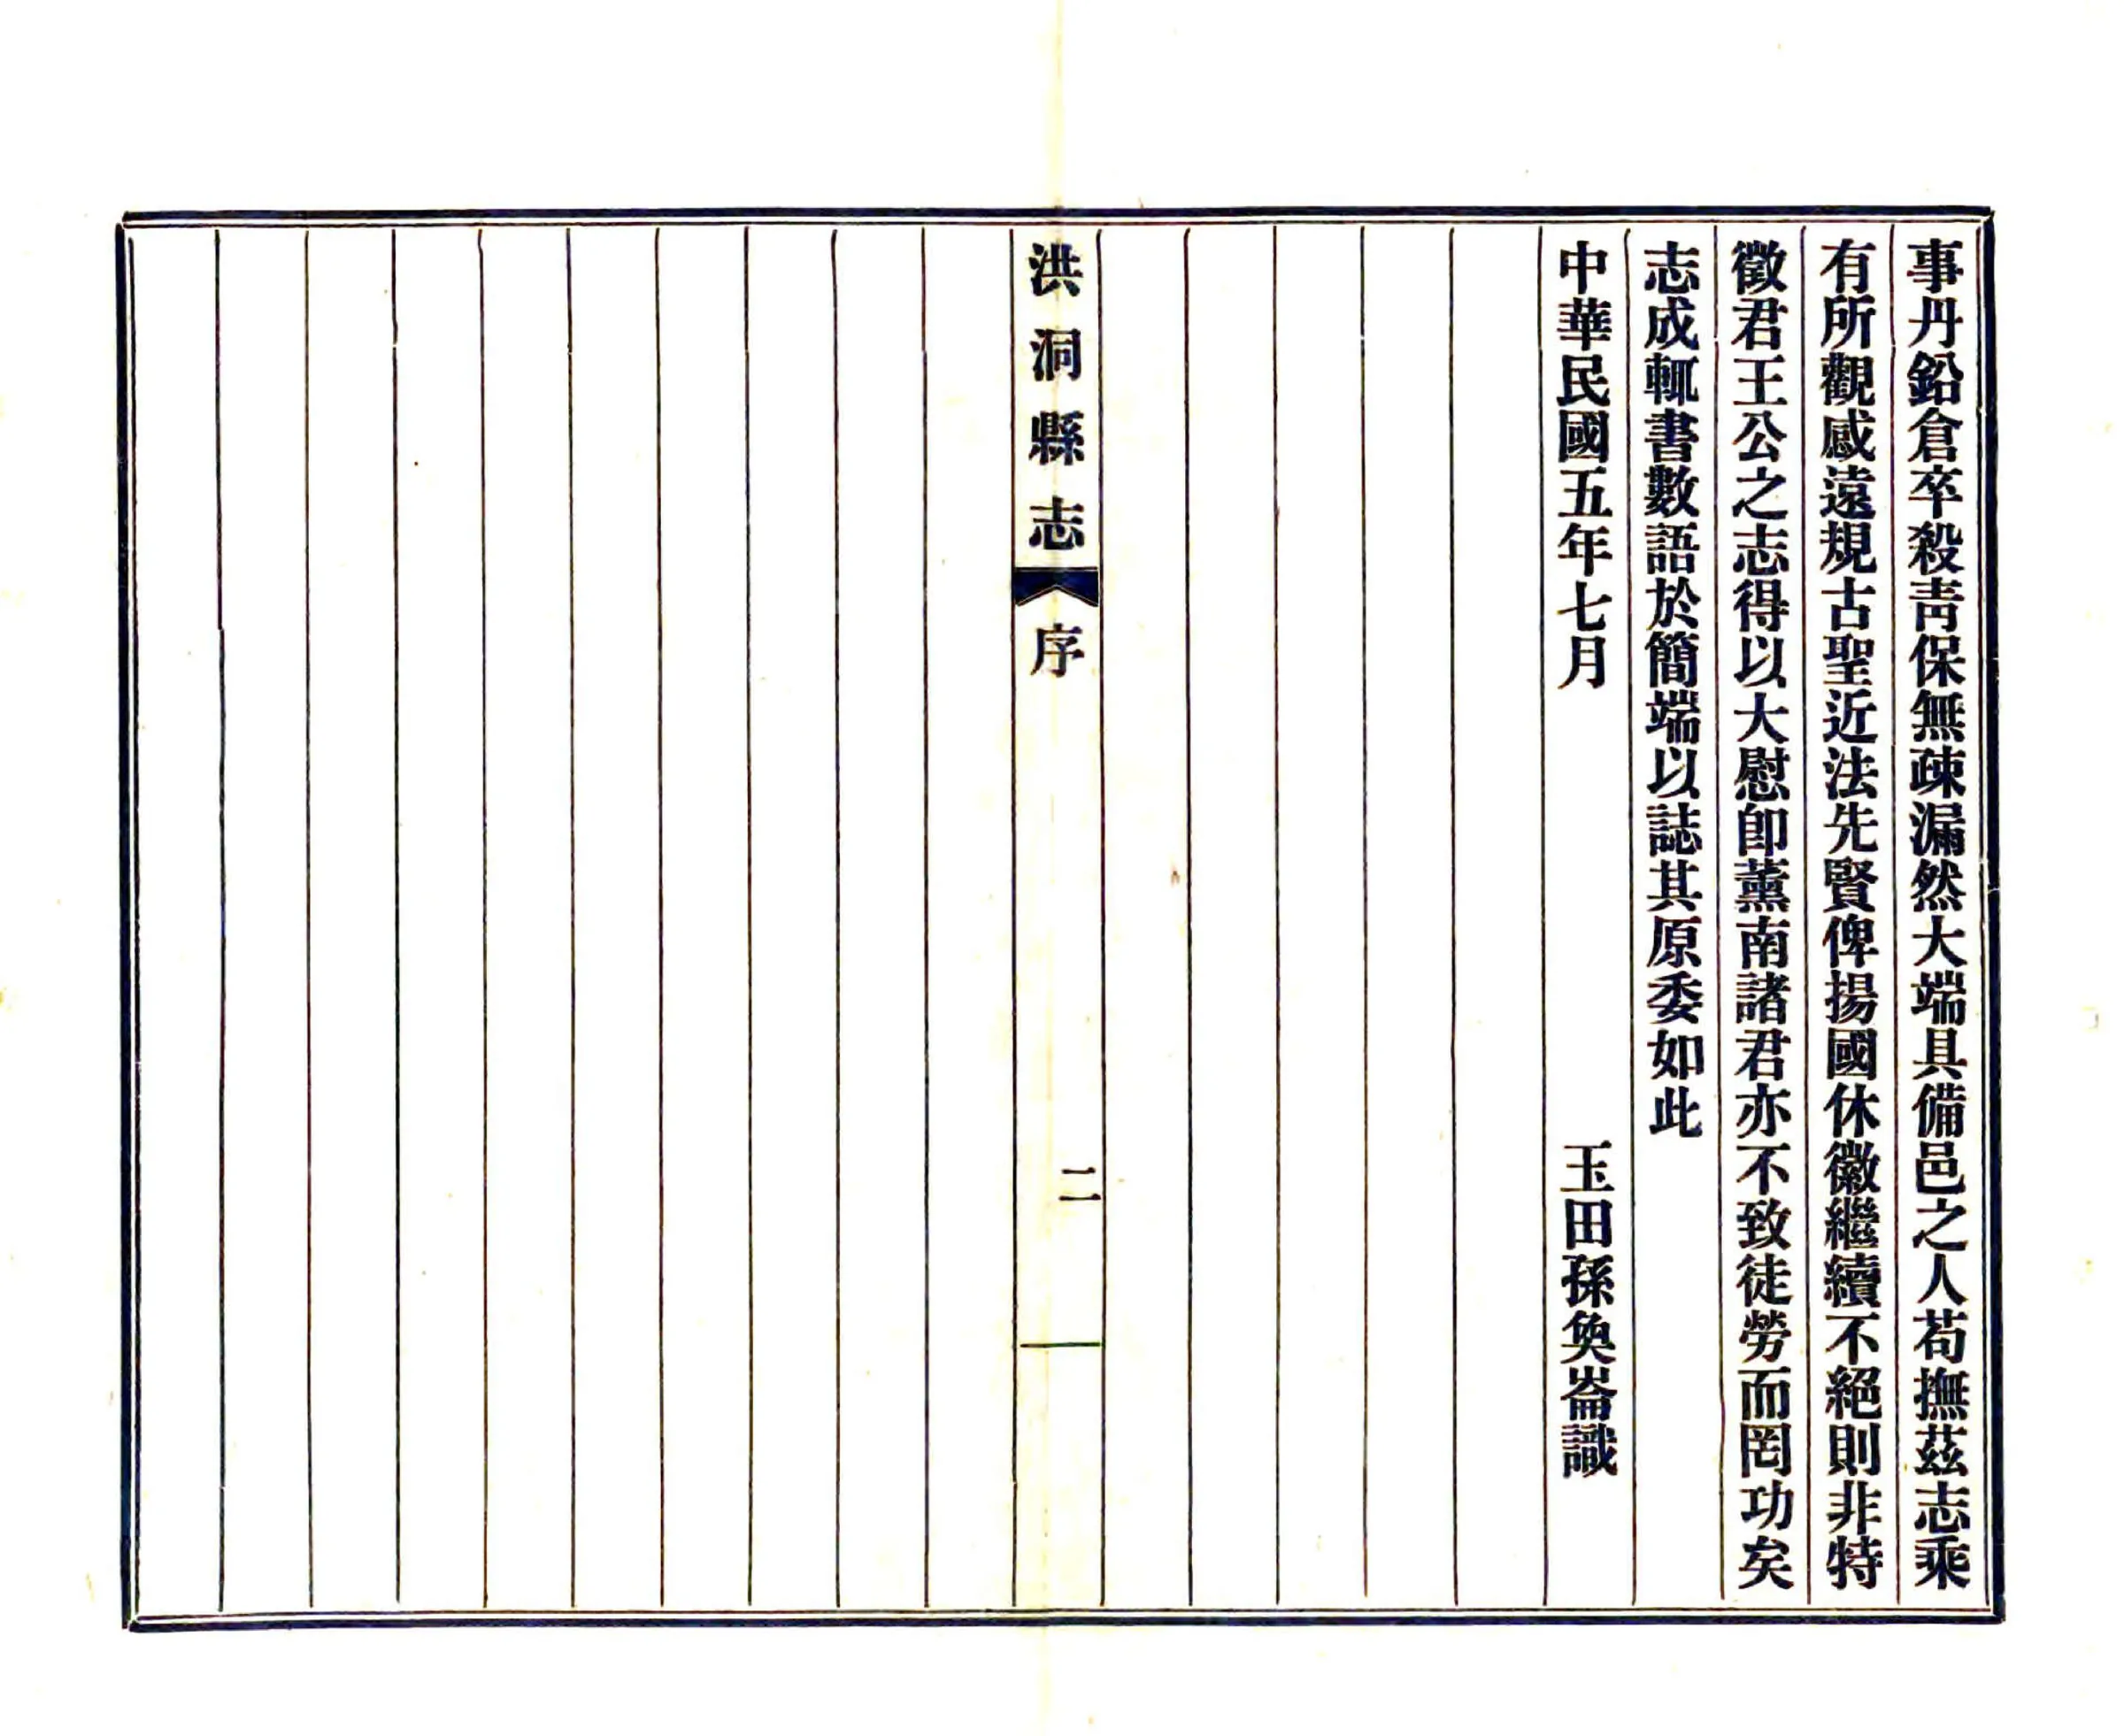 事丹鉛倉卒殺靑保無疎漏然大端具備邑之人苟撫茲志乘
有所觀感遠規古聖近法先賢俾揚國休徽繼續不絕則非特
徵君王公之志得以大慰卽薰南諸君亦不致徒勞而罔功矣
志成輒書數語於簡端以誌其原委如此
中華民國五年七月 玉田孫奐崙識
洪洞縣志 序 二